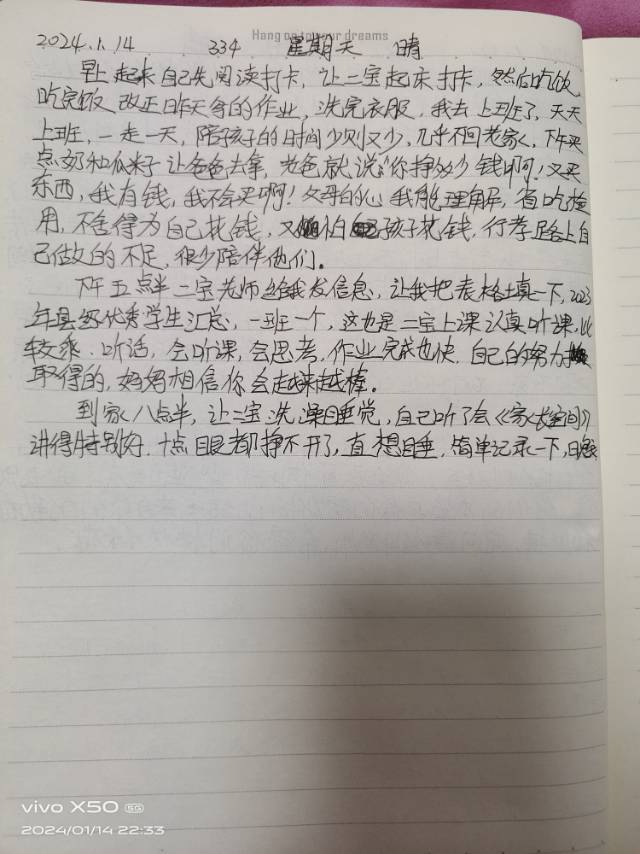 Hang on to your dreams
2024.1.14 334 星期天 晴
早上起来自己先阅读打卡，让二宝起床打卡，然后吃饭
吃完饭改正昨天写的作业，洗完衣服，我去上班了，天天
上班，一走一天，陪孩子的时间少则又少，几乎不回老家，下午买
点奶和瓜米子让爸爸去拿，老爸就说"你挣多少钱啊！又买
东西，我有钱，我不会买啊！父母的心我能理解，省吃捡
用，不舍得为自己花钱，又怕孩子花钱，行孝路上自
己做的不足，很少陪伴他们。
下午五点半二宝老师给我发信息，让我把表格填一下，2023
年县级优秀学生汇总，一班一个，这也是二宝上课认真听课，比
较乖．听话，会听课，会思考，作业完成也快．自己的努力
取得的，妈妈相信你会越来越棒。
到家八点半，让二宝洗澡睡觉，自己听了会《家长空间》
讲得特别好．十点眼都挣不开了，直想睡，简单记录一下，
vivo X50 5G
2024/01/14 22:33